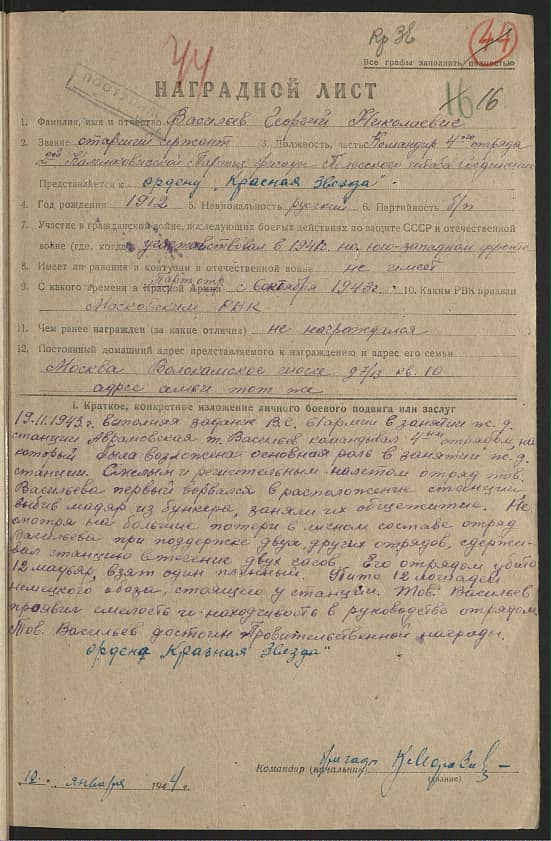 Кр Зв
44
44
Все графы заполнить полностью
НАГРАДНОЙ ЛИСТ
16 16
1. Фамилия, имя и отчество Васильев Георгий Николаевич
2. Звание старший сержант 3. Должность, часть Командир 4го отряда
Партиз. бригады Полесского Соединения
Представляется к ордену „Красная Звезда".
4. Год рождения 1912 5. Национальность русский 6. Партийность б/п
7. Участие в гражданской войне, последующих боевых действиях по защите СССР и отечественной
войне (где, когда) участвовал в 1941г. на юго-западном фронте
8. Имеет ли ранения и контузии в отечественной войне не имеет
Парт отр
9. С какого времени в Красной Армии с октября 1943г. 10. Каким РВК призван
Московским РВК
11. Чем ранее награжден (за какие отличия) не награждался
12. Постоянный домашний адрес представляемого к награждению и адрес его семьи
Москва Волокамское шоссе д7/2 кв. 10
адрес семьи тот же
I. Краткое, конкретное изложение личного боевого подвига или заслуг
19.11.1943г. выполняя задание В.С. 61 армии в занятии ж.д.
станции Аврамовская т. Васильев командывал 4ым отрядом, на
который была возложена основная роль в занятии ж.д.
станции. Смелым и решительным налетом отряд тов.
Васильева первый ворвался в расположение станции
выбив мадяр из бункера, заняли их общежитие. Не
смотря на большие потери в личном составе отряд
Васильева при поддержке двух других отрядов, сдержи-
вал станцию в течение двух часов. Его отрядом убито
12 мадьяр, взят один пленный. Убито 12 лошадей
немецкого обоза, стоящего у станции. Тов. Васильев
проявил смелость и находчивость в руководстве отрядом
Тов. Васильев достоин Правительственной награды
ордена „Красная Звезда"
Командир (начальник) бригады
(звание)
10. января 1944г.